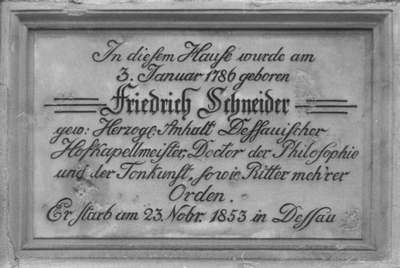 In diesem Hause wurde am
3. Januar 1786 geboren
Friedrich Schneider
gew: Herzogl. Anhalt Dessauischer
Hofkapellmeister, Doctor der Philosophie
und der Tonkunst, sowie Ritter meh'rer
Orden.
Er starb am 23. Nobr. 1853 in Dessau